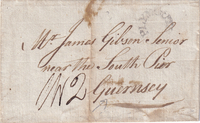 Mr. James Gibson Senior
near the South Pier
Guernsey